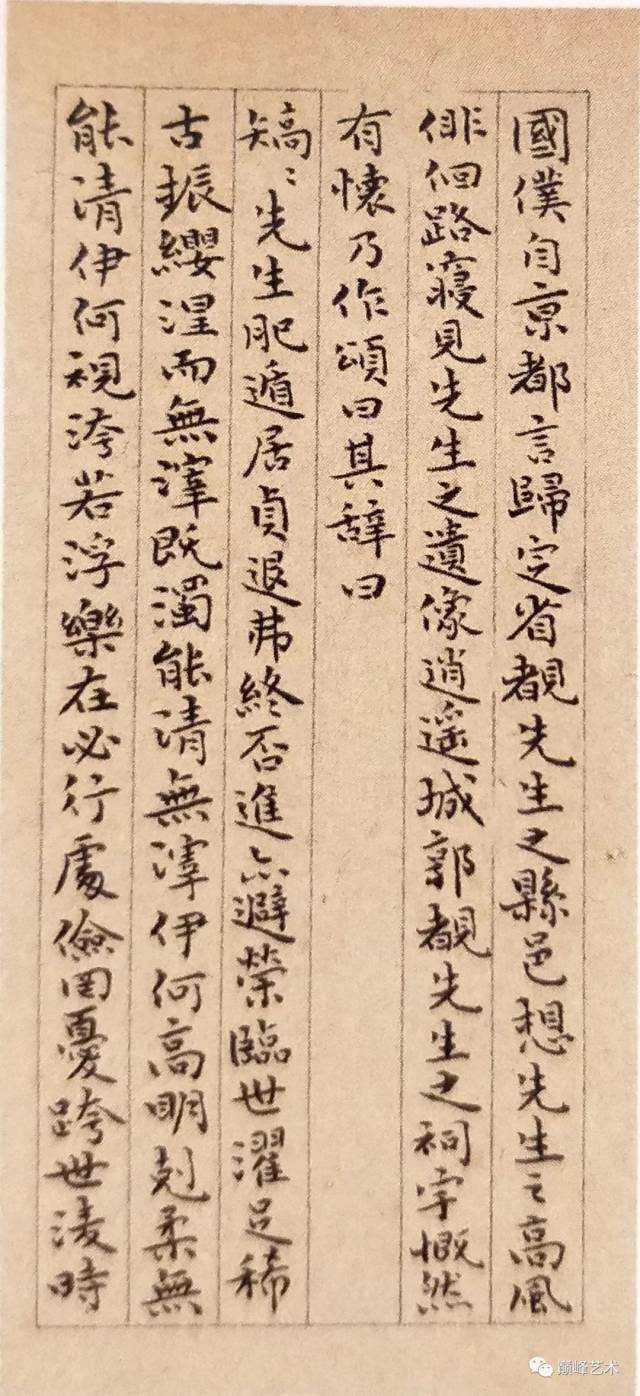 國僕自京都言歸定省覩先生之縣邑想先生之高風
俳佪路寢見先生之遺像逍遥城郭覩先生之祠宇慨然
有懷乃作頌曰其辭曰
矯〻先生肥遁居貞退弗終否進亦避榮臨世濯足稀
古振纓涅而無滓既濁能清無滓伊何高明剋柔無
能清伊何視洿若浮樂在必行處儉罔憂跨世淩時
巅峰艺术